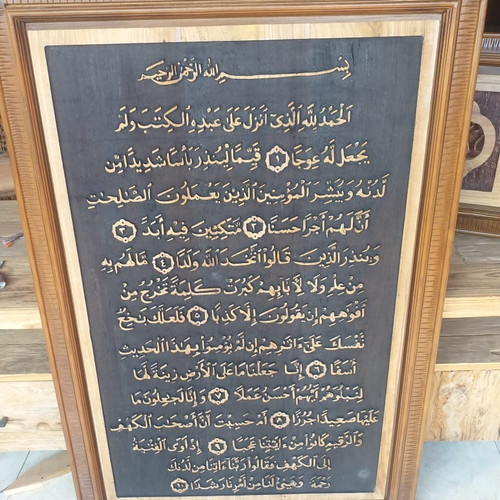 بِسْمِ اللهِ الرَّحْمٰنِ الرَّحِيْمِ
اَلْحَمْدُ لِلّٰهِ الَّذِيْٓ اَنْزَلَ عَلٰى عَبْدِهِ الْكِتٰبَ وَلَمْ
يَجْعَلْ لَّهُ عِوَجًا ١ قَيِّمًا لِّيُنْذِرَ بَأْسًا شَدِيْدًا مِّنْ
لَّدُنْهُ وَيُبَشِّرَ الْمُؤْمِنِيْنَ الَّذِيْنَ يَعْمَلُوْنَ الصّٰلِحٰتِ
اَنَّ لَهُمْ اَجْرًا حَسَنًا ٢ مّٰكِثِيْنَ فِيْهِ اَبَدًا ٣
وَيُنْذِرَ الَّذِيْنَ قَالُوا اتَّخَذَ اللهُ وَلَدًا ٤ مَّا لَهُمْ بِهٖ
مِنْ عِلْمٍ وَّلَا لِاٰبَاۤىِٕهِمْ كَبُرَتْ كَلِمَةً تَخْرُجُ مِنْ
اَفْوَاهِهِمْ اِنْ يَّقُوْلُوْنَ اِلَّا كَذِبًا ٥ فَلَعَلَّكَ بَاخِعٌ
نَّفْسَكَ عَلٰٓى اٰثَارِهِمْ اِنْ لَّمْ يُؤْمِنُوْا بِهٰذَا الْحَدِيْثِ
اَسَفًا ٦ اِنَّا جَعَلْنَا مَا عَلَى الْاَرْضِ زِيْنَةً لَّهَا
لِنَبْلُوَهُمْ اَيُّهُمْ اَحْسَنُ عَمَلًا ٧ وَاِنَّا لَجٰعِلُوْنَ مَا
عَلَيْهَا صَعِيْدًا جُرُزًا ٨ اَمْ حَسِبْتَ اَنَّ اَصْحٰبَ الْكَهْفِ
وَالرَّقِيْمِ كَانُوْا مِنْ اٰيٰتِنَا عَجَبًا ٩ اِذْ اَوَى الْفِتْيَةُ
اِلَى الْكَهْفِ فَقَالُوْا رَبَّنَآ اٰتِنَا مِنْ لَّدُنْكَ
رَحْمَةً وَّهَيِّئْ لَنَا مِنْ اَمْرِنَا رَشَدًا ١٠